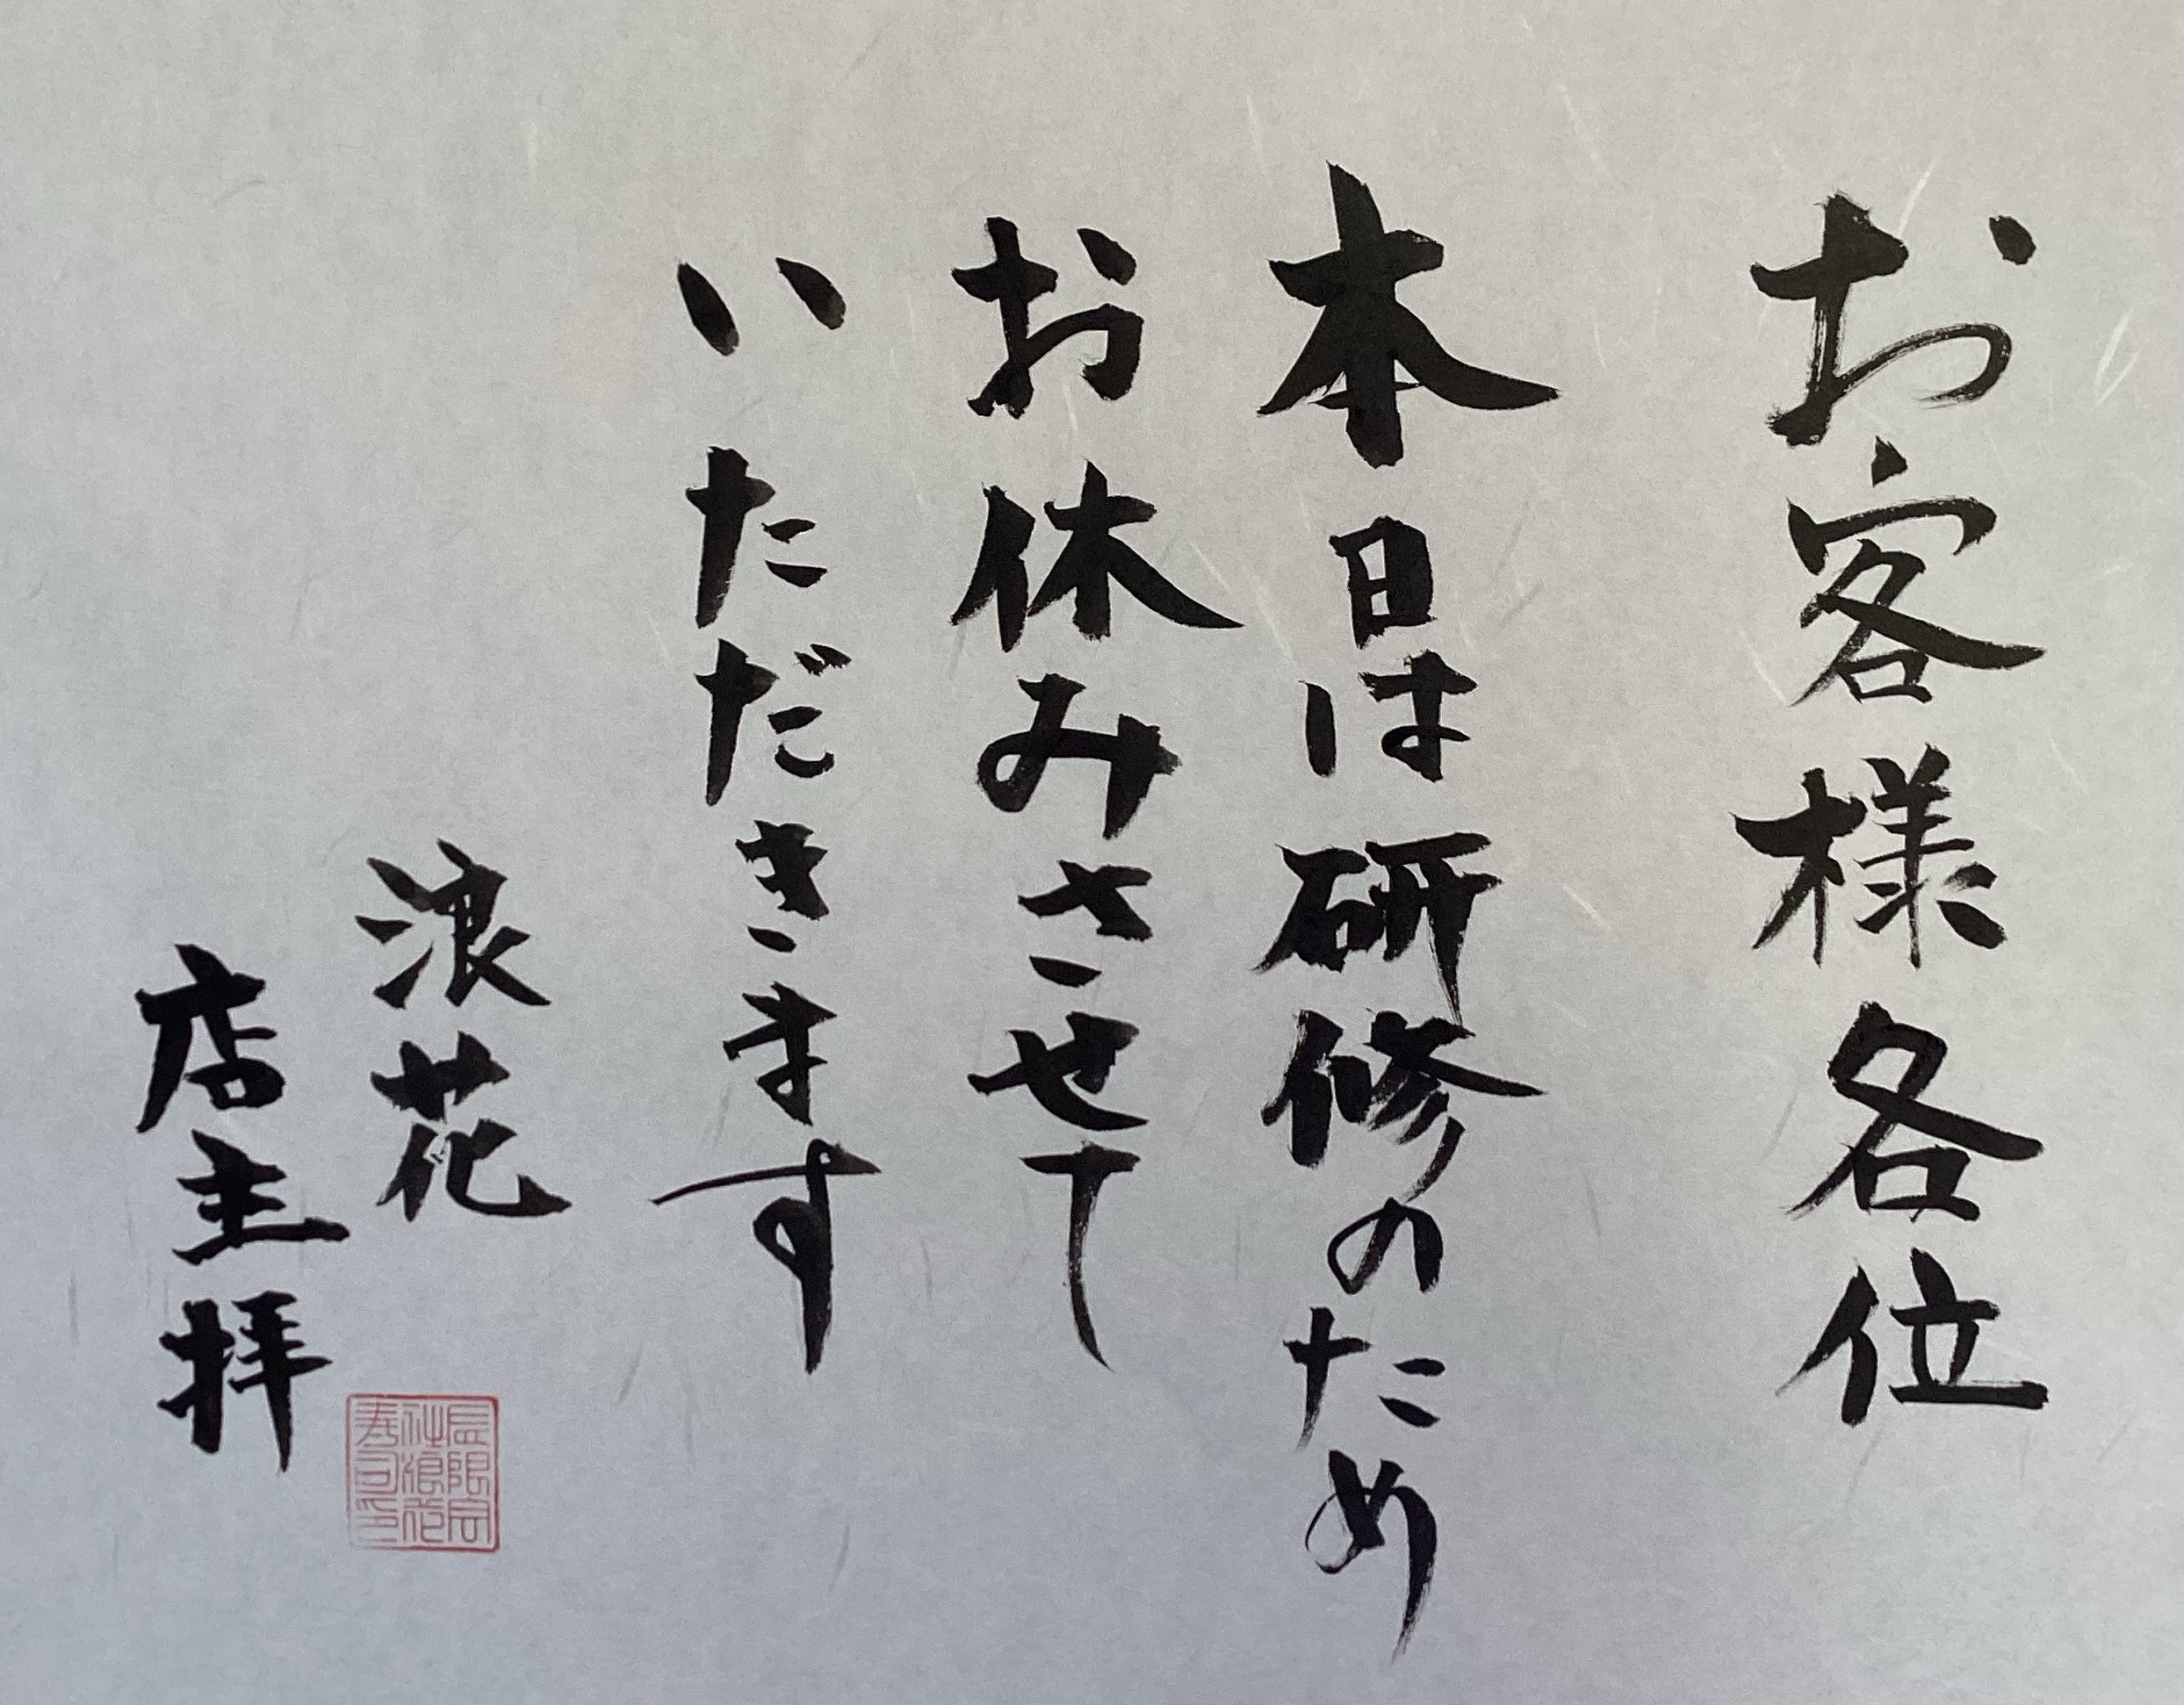 お客様各位
本日は研修のため
お休みさせて
いただきます
浪花
店主拝